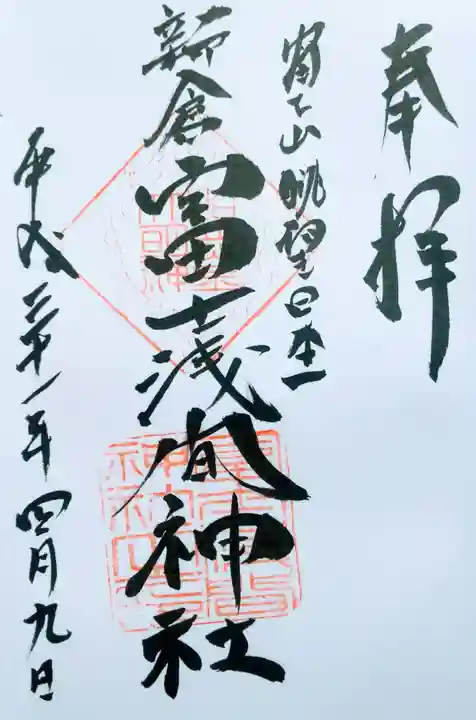 奉拝
富士山眺望日本一
新倉富士浅間神社
平成三十一年四月九日